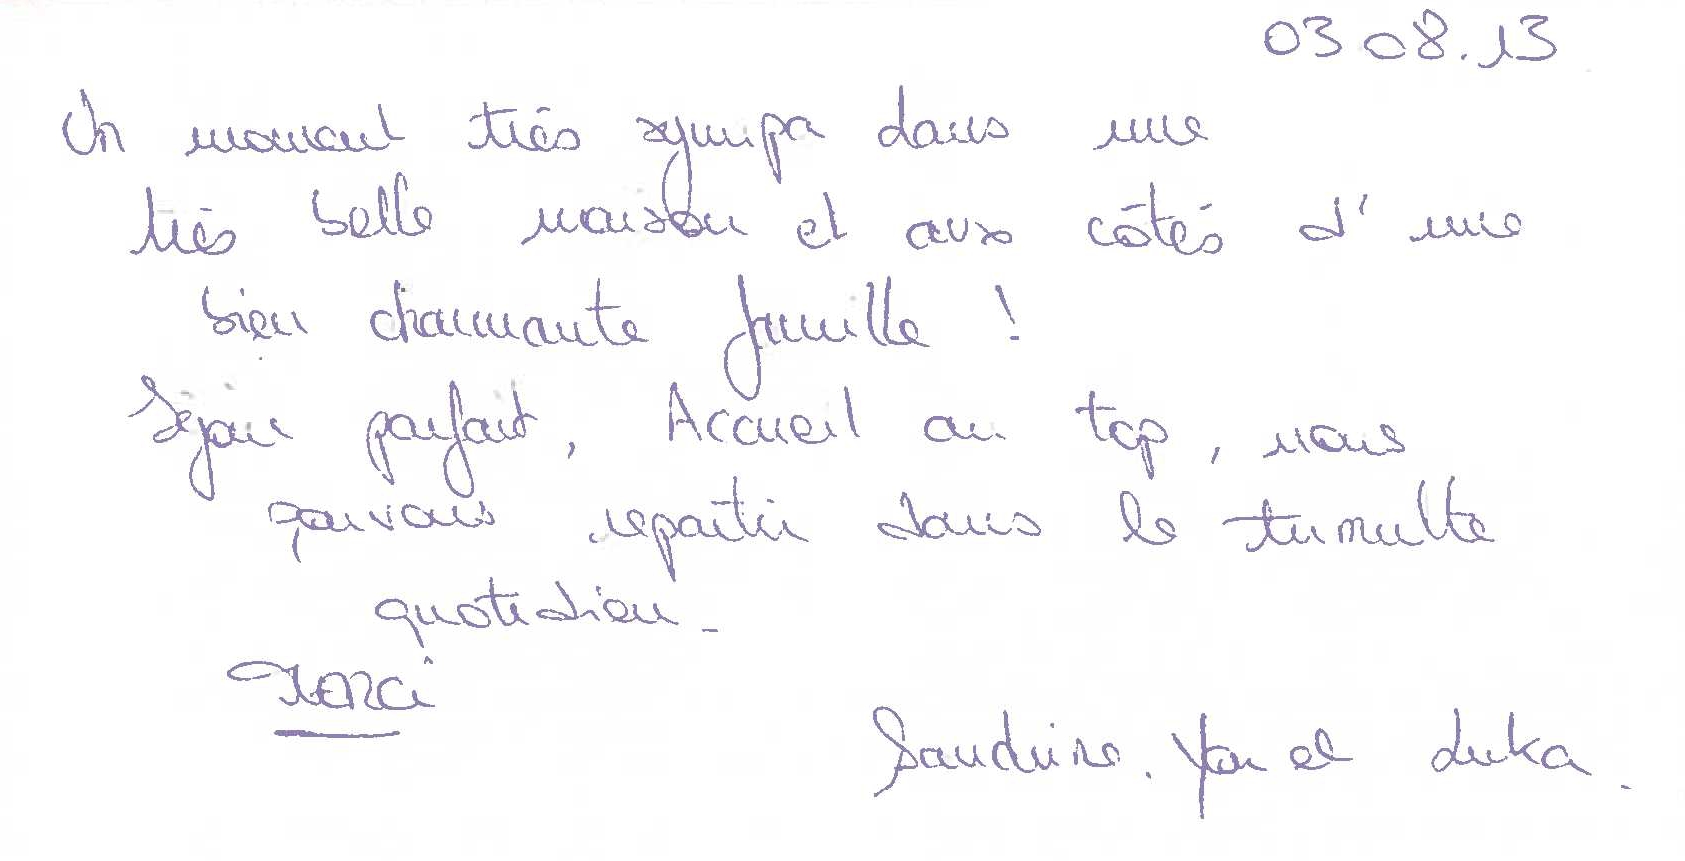 03 08.13
Un moment très sympa dans une
très belle maison et aux côtés d'une
bien charmante famille !
Séjour parfait, Accueil au top, nous
pouvons repartir dans le tumulte
quotidien.
Merci
Sandrine. Yan et Luka.